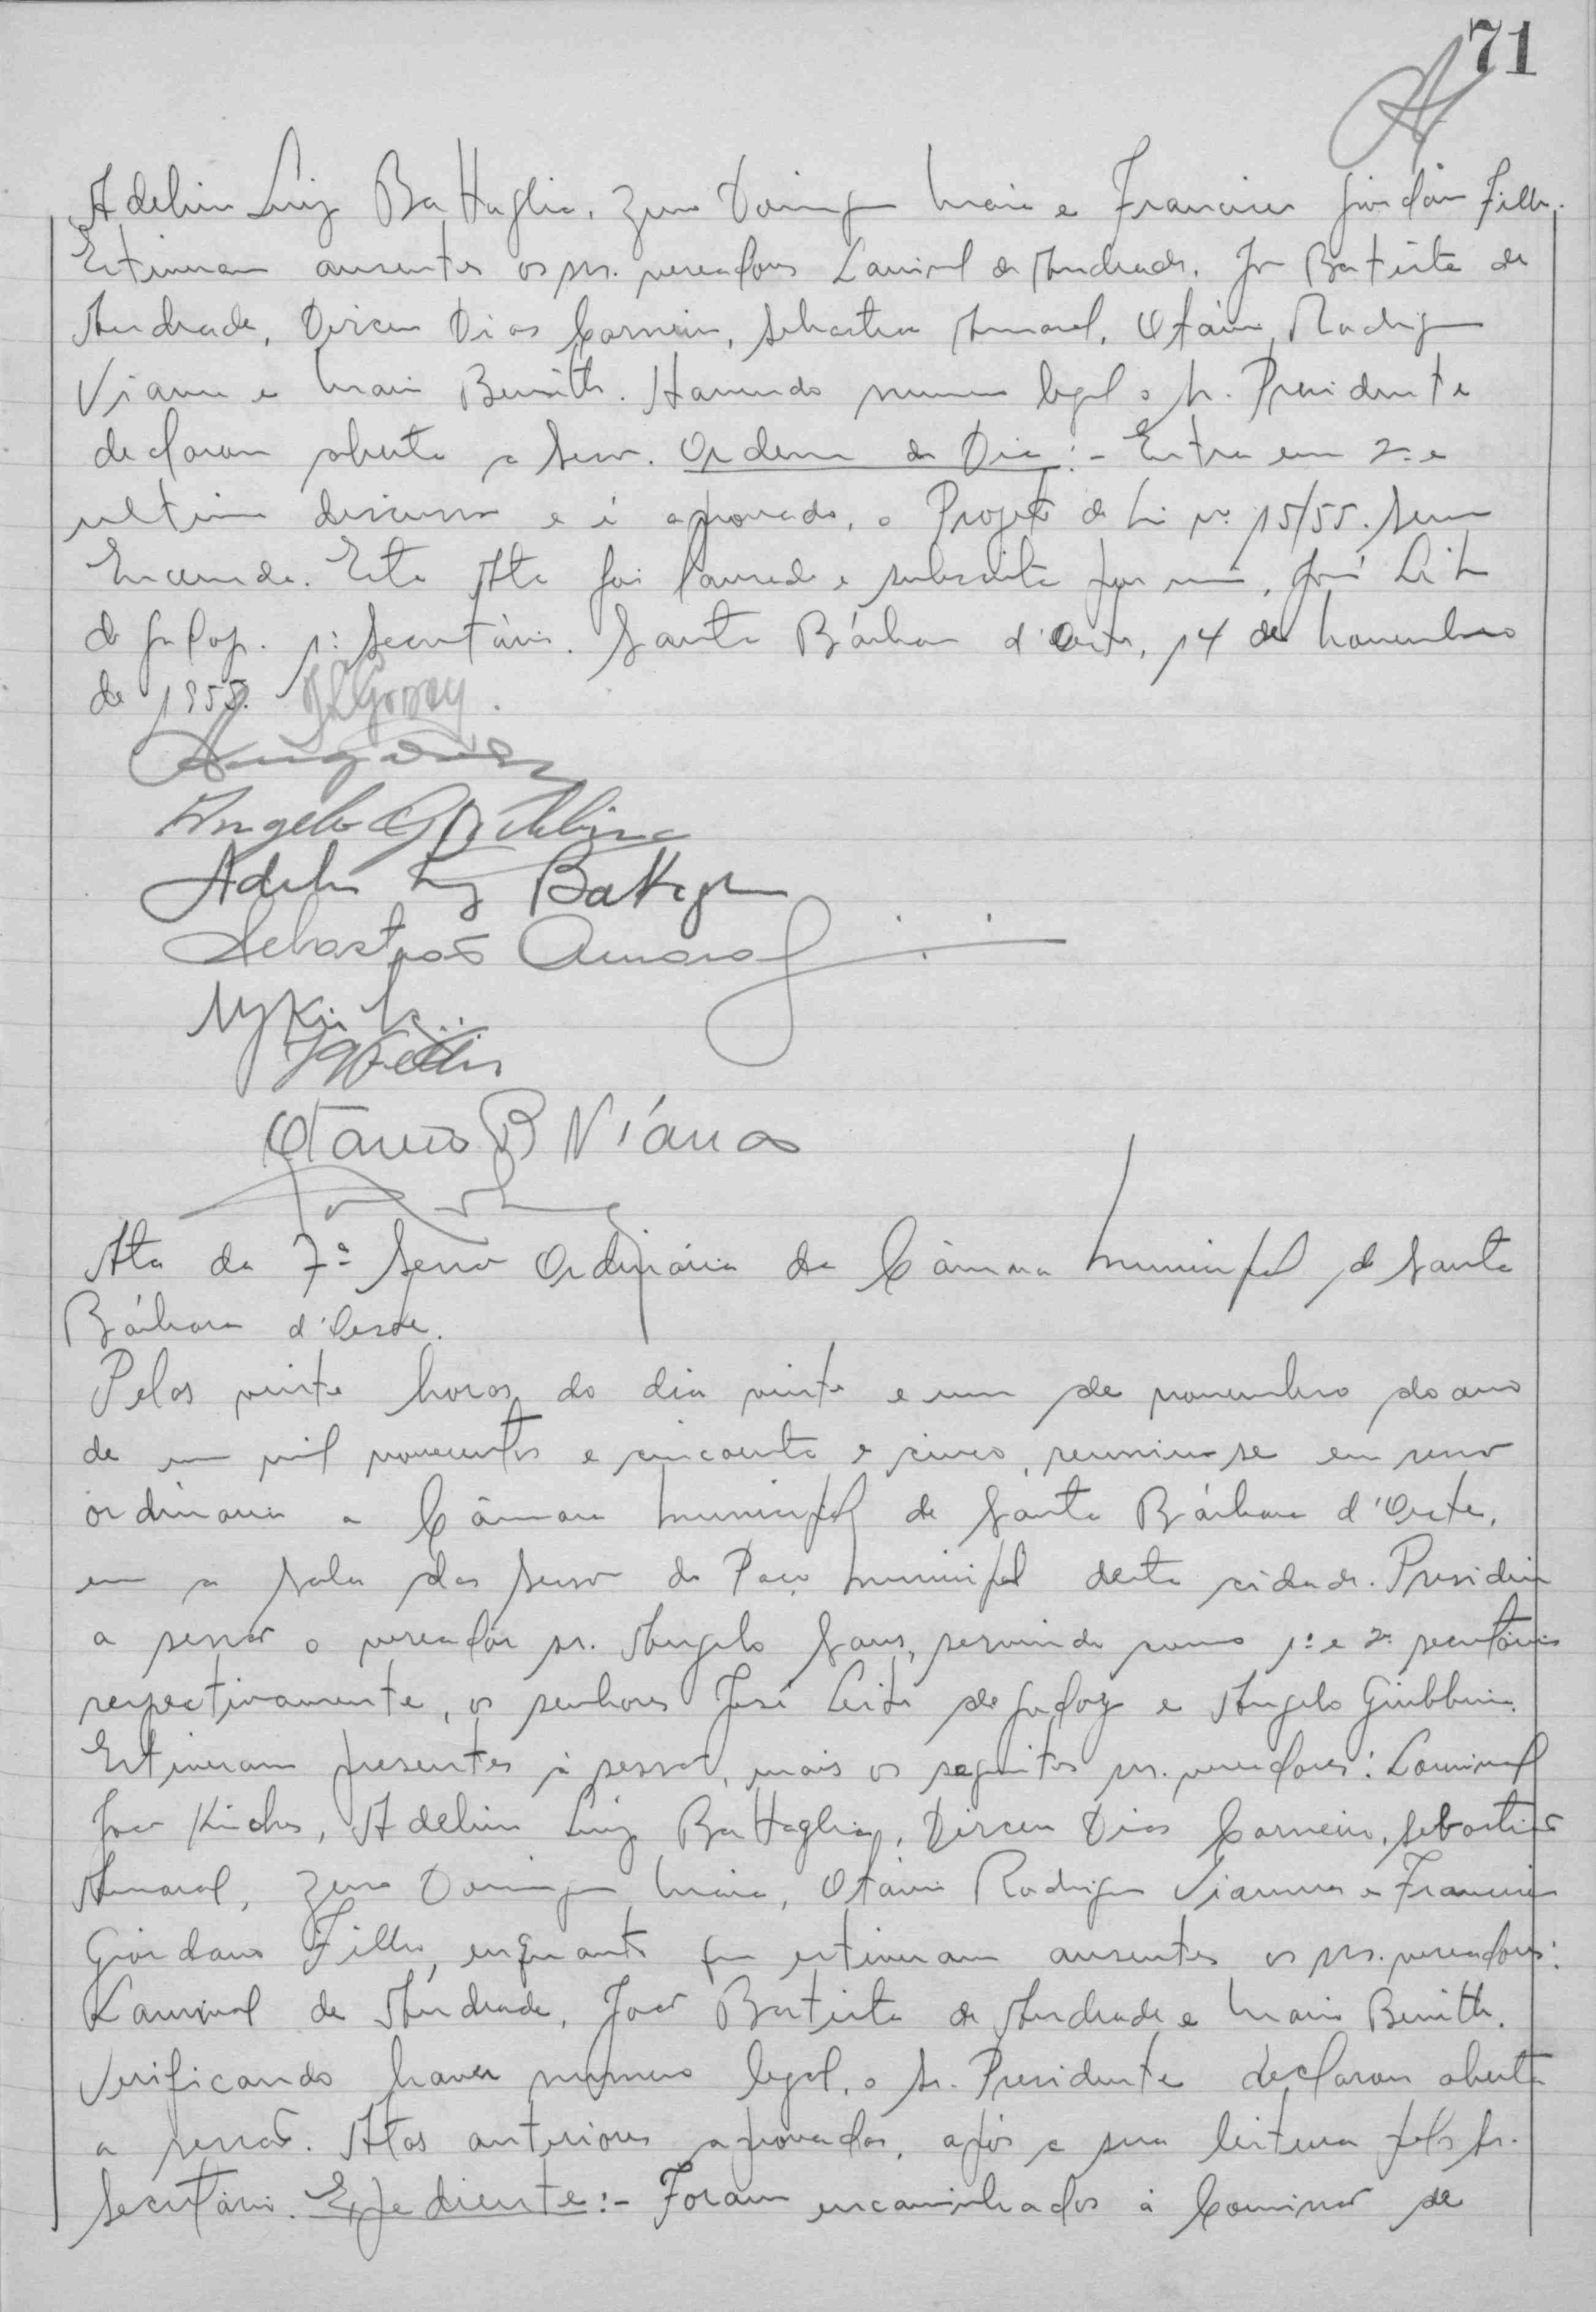 71
Adelino Luiz Battaglia, Zeno Domingos Maia e Francisco Giordano Filho.
Estiveram ausentes os srs. vereadores Laurival de Andrade, João Batista de
Andrade, Dirceu Dias Carneiro, Sebastião Amaral, Otávio Rodrigues
Vianna e Mario Benitto. Havendo numero legal o Sr. Presidente
declarou aberta a Sessão. Ordem do Dia:- Entra em 2ª e
ultima discussão e é aprovado, o Projeto de Lei nº 15/55. Sessão
Encerrada. Esta Ata foi lavrada e subscrita por mim, José Leite
de Godoy. 1º Secretário. Santa Bárbara d'Oeste, 14 de novembro
de 1955. JLGodoy.
Angelo
Adelino Luiz Battaglia
Sebastião Amaral
Otavio R Viana
Ata da 7ª Sessão Ordinária da Câmara Municipal de Santa
Bárbara d'Oeste.
Pelas vinte horas do dia vinte e um de novembro do ano
de um mil novecentos e cincoenta e cinco, reuniu-se em sessão
ordinaria a Câmara Municipal de Santa Bárbara d'Oeste,
em a sala das Sessões do Paço Municipal desta cidade. Presidiu
a sessão o vereador sr. Angelo Sans, servindo como 1º e 2º secretários
respectivamente, os senhores José Leite de Godoy e Angelo Giubbina.
Estiveram presentes à sessão, mais os seguintes srs. vereadores: Lourival
João Kinchs, Adelino Luiz Battaglia, Dirceu Dias Carneiro, Sebastião
Amaral, Zeno Domingos Maia, Otávio Rodrigues Vianna e Francisco
Giordano Filho, enquanto que estiveram ausentes os srs. vereadores:
Laurival de Andrade, João Batista de Andrade e Mario Benitto.
Verificando haver numero legal, o Sr. Presidente declarou aberta
a sessão. Atas anteriores aprovadas, após a sua leitura pelo Sr.
Secretário. Expediente:- Foram encaminhados à Comissão de